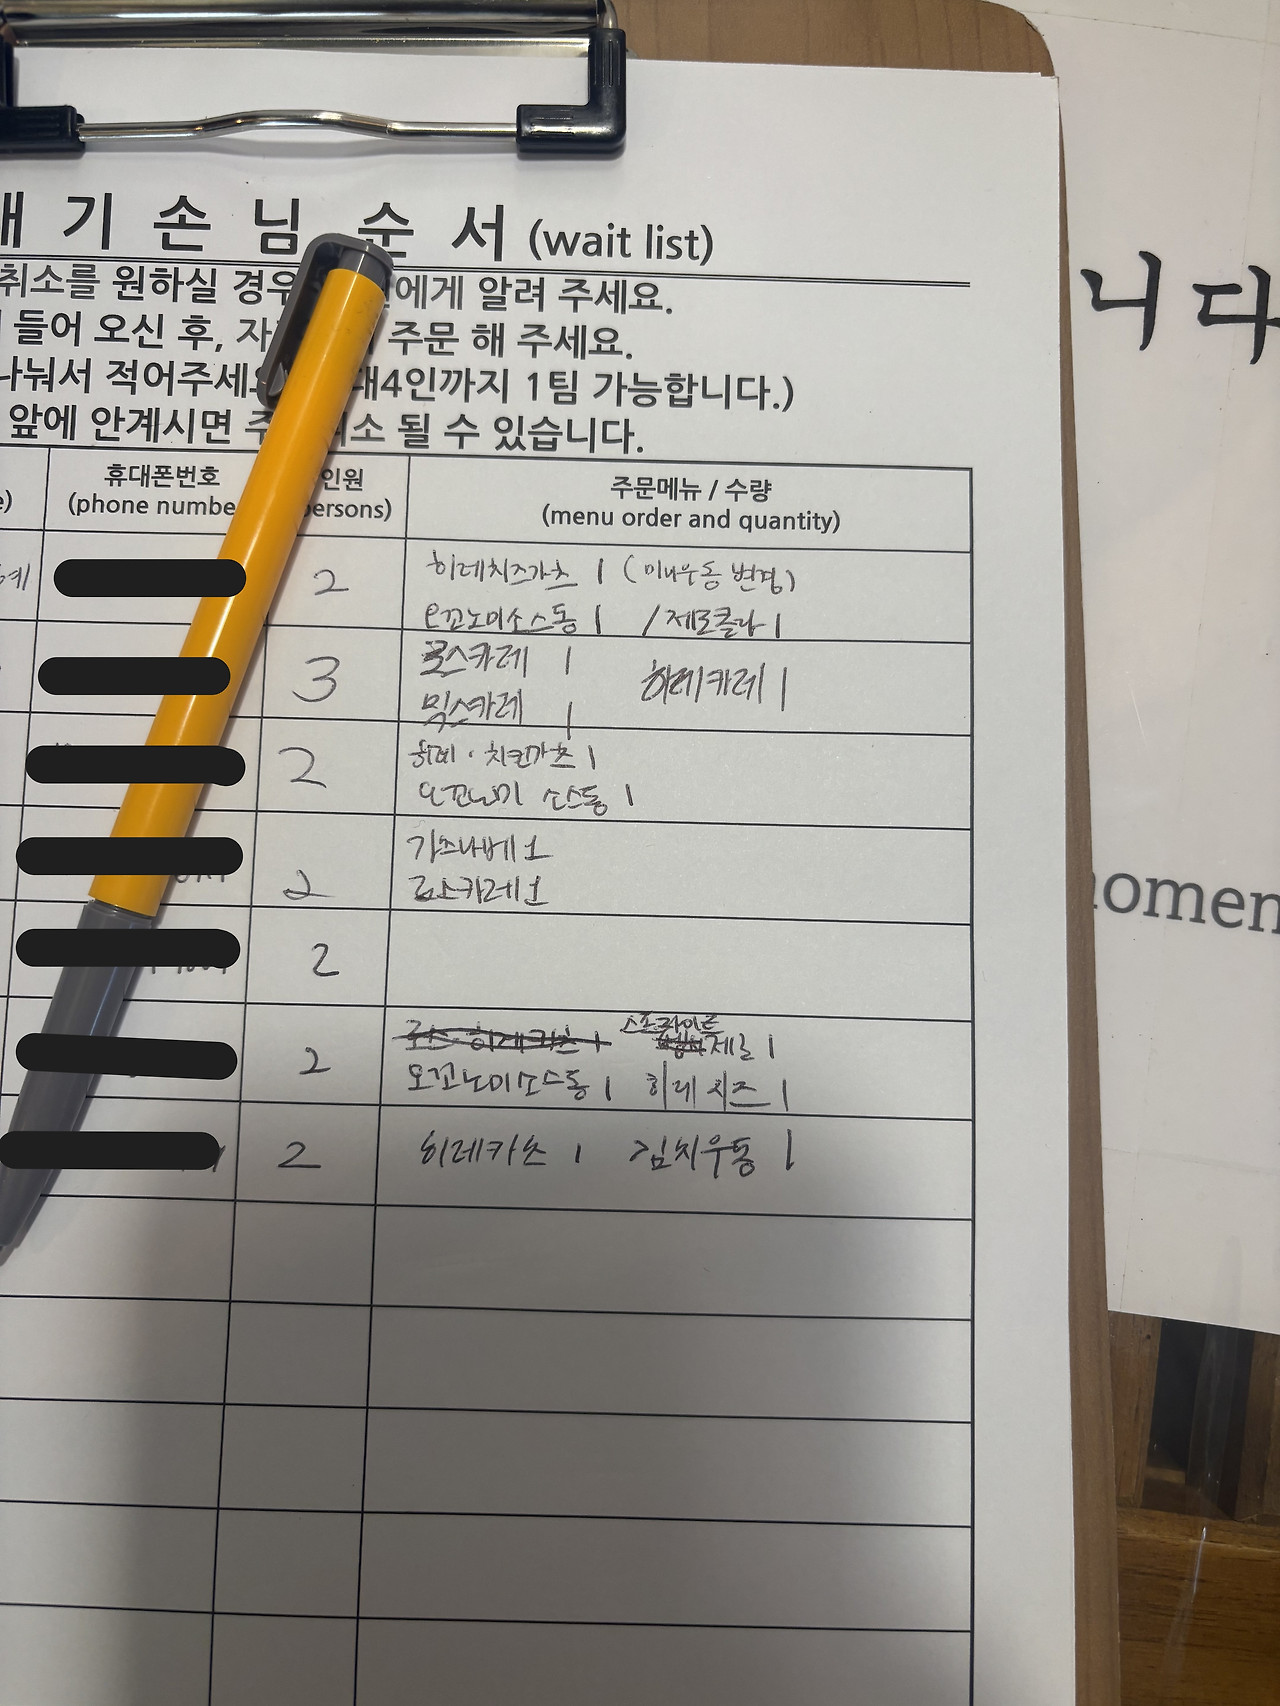 기 손 님 순 서 (wait list)
취소를 원하실 경우 에게 알려 주세요.
들어 오신 후, 자 주문 해 주세요.
나눠서 적어주세 대4인까지 1팀 가능합니다.)
앞에 안계시면 주 소 될 수 있습니다.
휴대폰번호 인원 주문메뉴 / 수량
(phone numbe ersons) (menu order and quantity)
2 히레치즈가츠 1 (미니우동 변경)
오꼬노미소스동 1 /제로콜라 1
3 로스카레 1 히레카레 1
믹스카레 1
2 히레·치킨가츠 1
오꼬노미 소스동 1
가츠나베 1
2 로스카레 1
2
로스·히레카츠 1 스프라이트
2 제로 1
오꼬노미소스동 1 히레치즈 1
2 히레카츠 1 김치우동 1
니다
omen